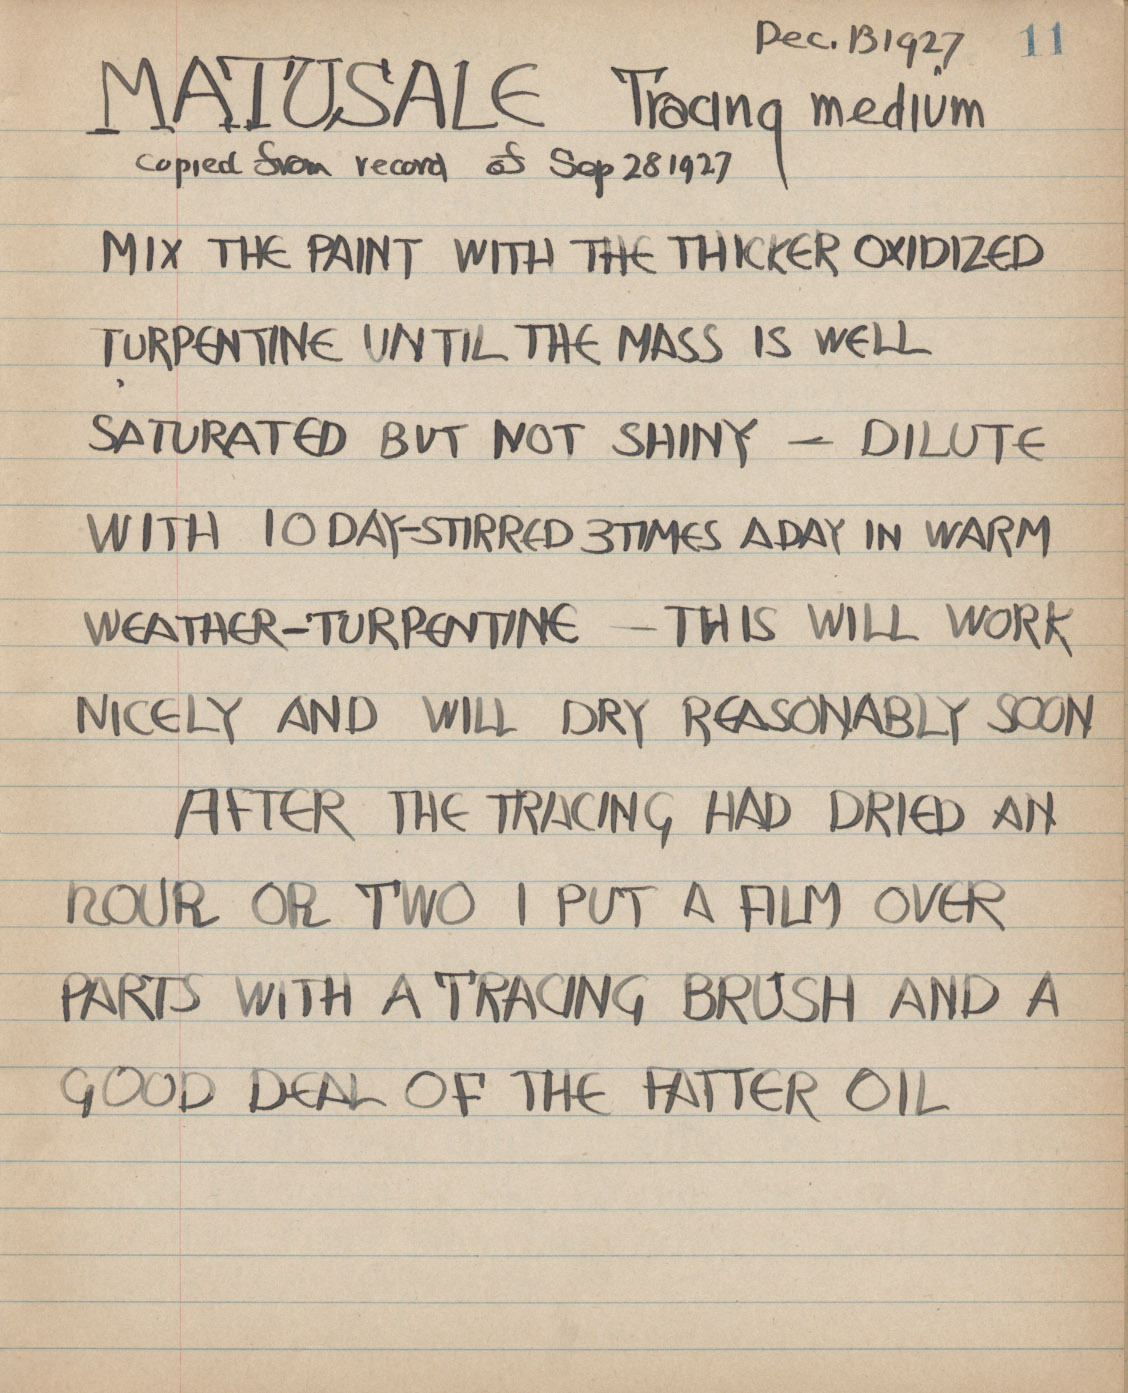 Dec. 13 1927 11
MATUSALE Tracing medium
copied from record of Sep 28 1927
MIX THE PAINT WITH THE THICKER OXIDIZED
TURPENTINE UNTIL THE MASS IS WELL
SATURATED BUT NOT SHINY — DILUTE
WITH 10 DAY-STIRRED 3 TIMES A DAY IN WARM
WEATHER-TURPENTINE — THIS WILL WORK
NICELY AND WILL DRY REASONABLY SOON
AFTER THE TRACING HAD DRIED AN
HOUR OR TWO I PUT A FILM OVER
PARTS WITH A TRACING BRUSH AND A
GOOD DEAL OF THE FATTER OIL